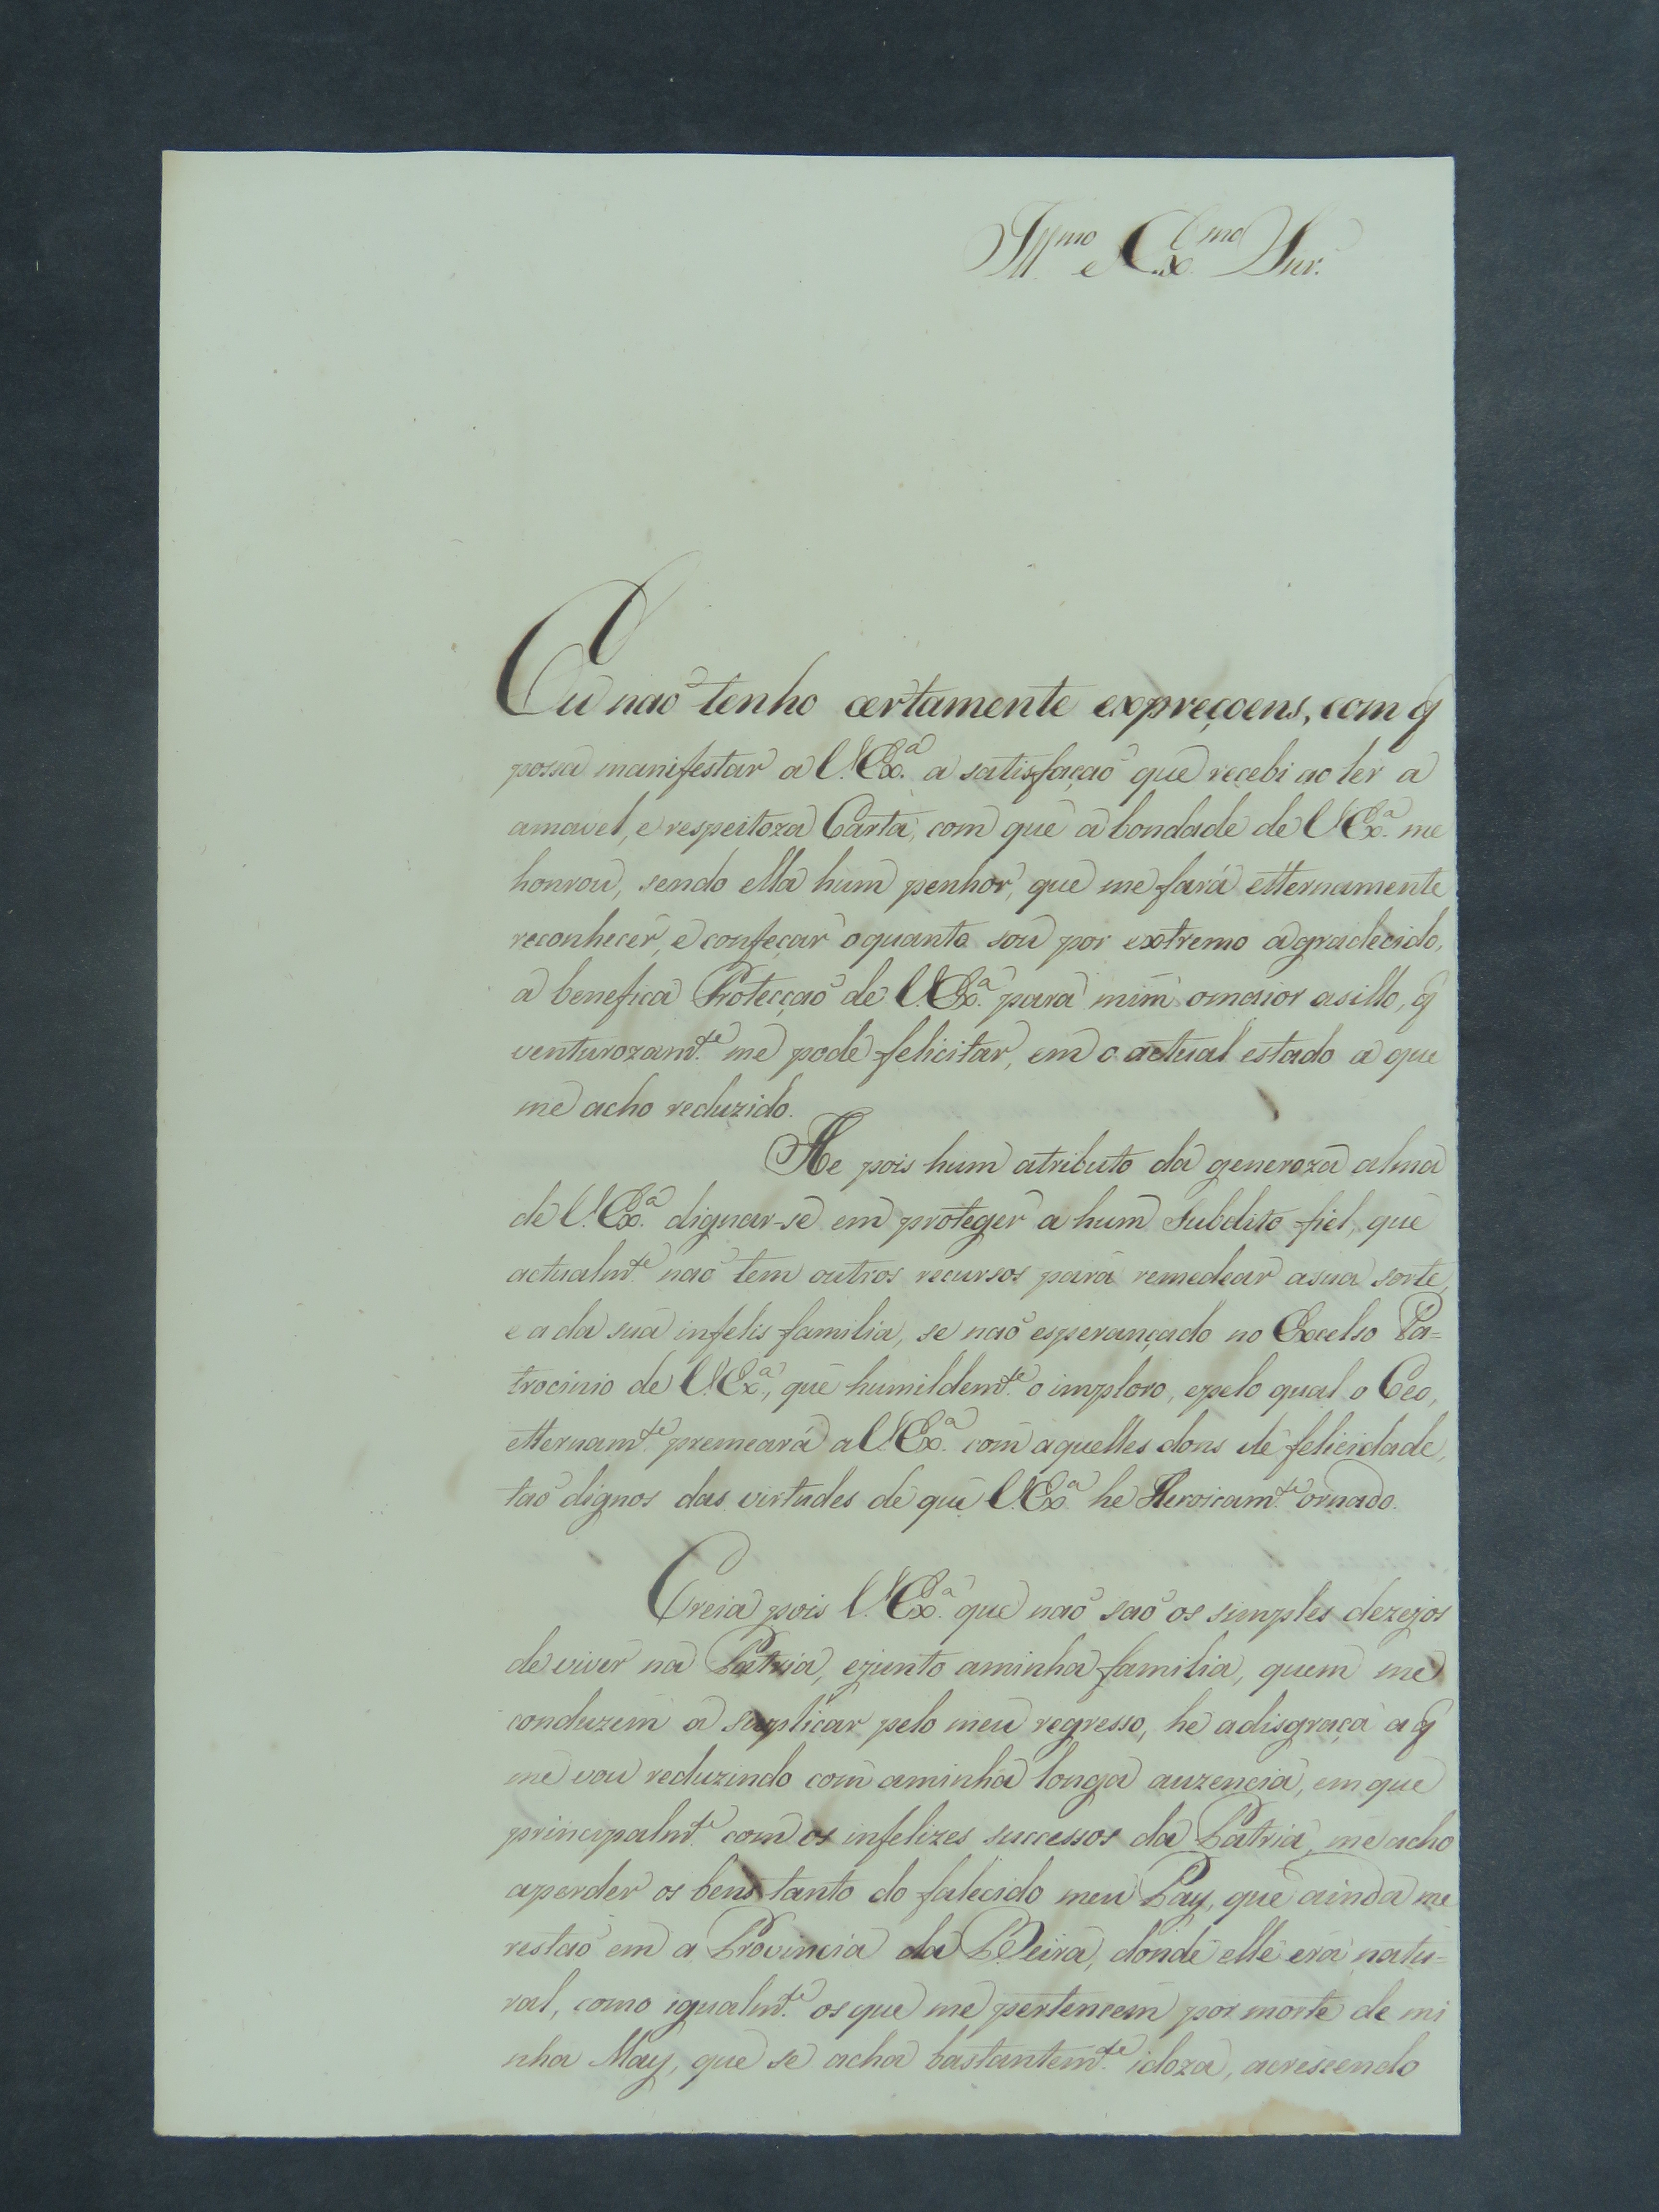 Ill.mo e Ex.mo Snr.
Eu naõ tenho certamente expreçoens, com q̃
possa manifestar a V. Ex.a a satisfaçaõ que recebi ao ler a
amavel, e respeitoza Carta, com que a bondade de V. Ex.a me
honrou, sendo ella hum penhor, que me fará etternamente
reconhecer, e confeçar o quanto sou por extremo agradecido,
a benefica Protecçaõ de V. Ex.a para mim o maior asillo, q̃
venturozam.te me pode felicitar, em o actual estado a que
me acho reduzido.
He pois hum atributo da generoza alma
de V. Ex.a dignar-se em proteger a hum Subdito fiel, que
actualm.te naõ tem outros recursos para remedear a sua sorte,
e a da sua infelis familia, se naõ esperançado no Excelso Pa=
trocinio de V. Ex.a, que humildem.te o imploro, e pelo qual o Ceo,
etternam.te premeará a V. Ex.a com aquelles dons de felicidade,
taõ dignos das virtudes de que V. Ex.a he Heroicam.te ornado.
Creia pois V. Ex.a que naõ saõ os simples dezejos
de viver na Patria, e junto a minha familia, quem me
conduzem a suplicar pelo meu regresso, he a disgraça a q̃
me vou reduzindo com a minha longa auzencia, em que
principalm.te com os infelizes successos da Patria, me acho
a perder os bens tanto do falecido meu Pay, que ainda me
restaõ em a Provincia da Beira, donde elle era natu=
ral, como igualm.te os que me pertencem por morte de mi
nha May, que se acha bastantem.te idoza, acrescendo